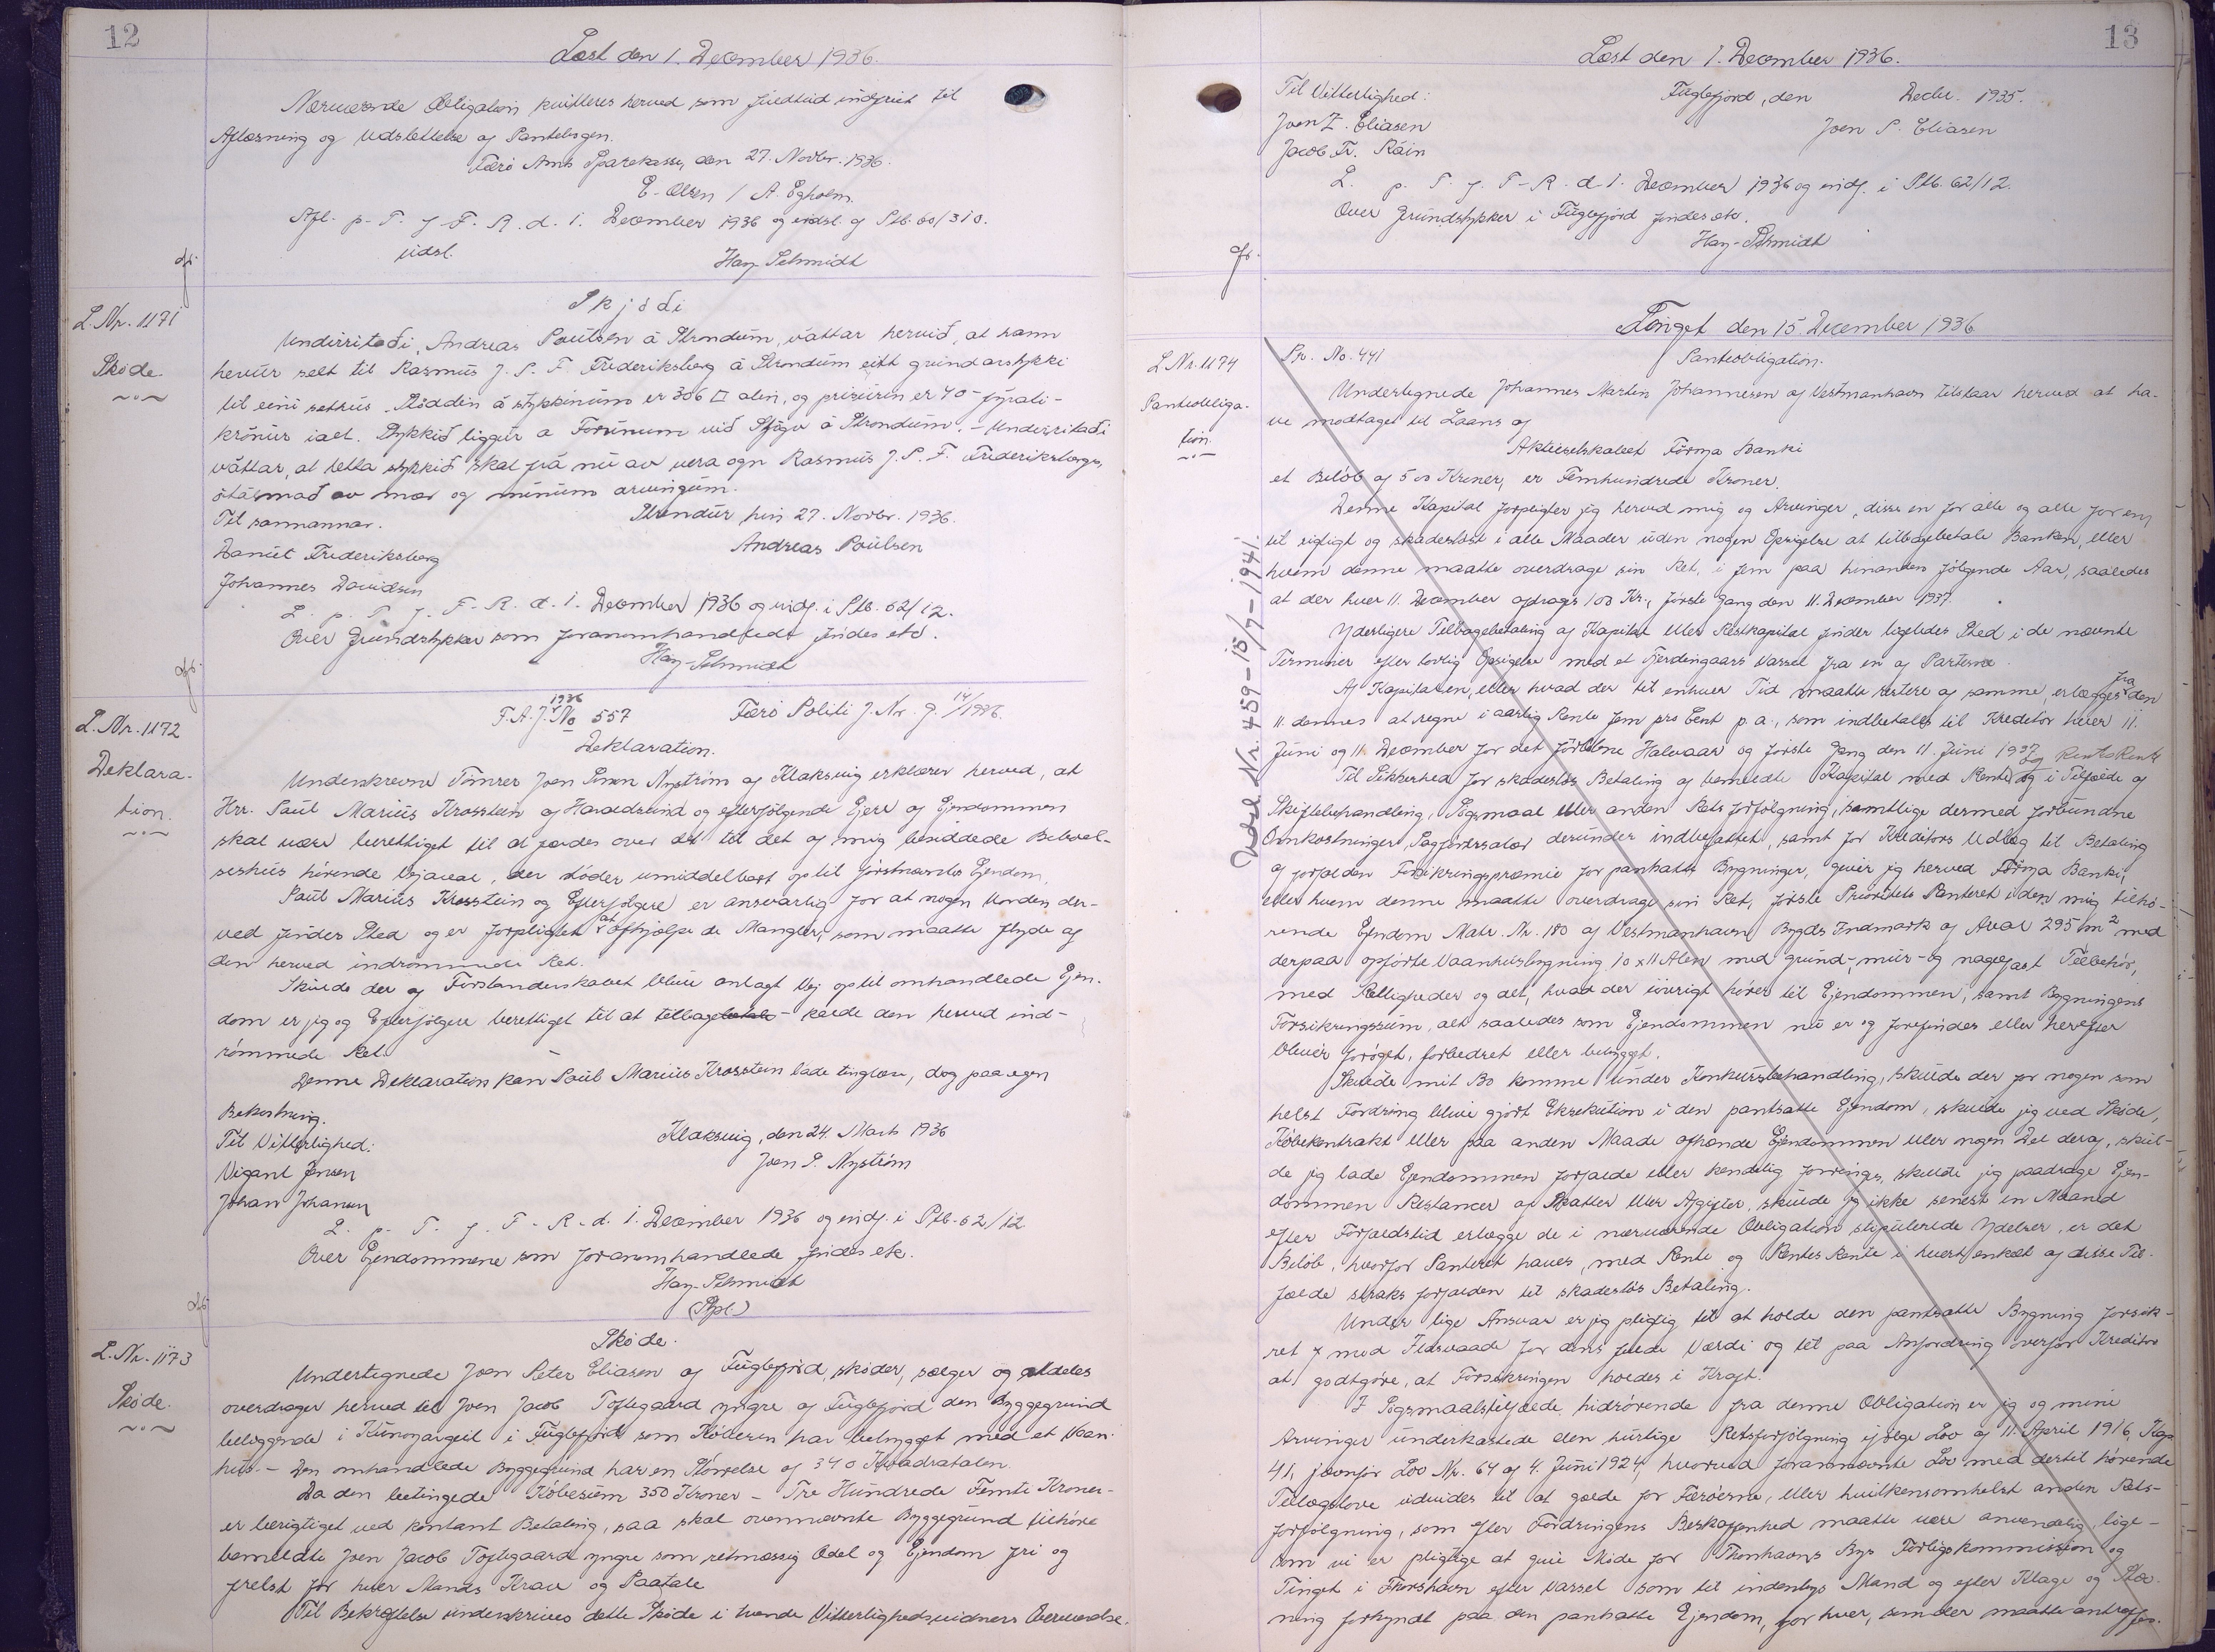 12
Læst den 1. December 1936.
Nærværende Obligation kvitteres herved som fuldtud indfriet til
Aflæsning og Udslettelse af Pantebogen.
Færø Amts Sparekasse, den 27. Novbr. 1936.
E. Olsen / A. Egholm.
Afl. p. T. f. F. R. d. 1. December 1936 og udsl. af Ptb. 60/310.
udsl.
Hay-Schmidt
L. Nr. 1171
Skøde.
Skjødi
Undirritaði, Andreas Poulsen á Strondum, váttar hervið, at hann
hevur selt til Rasmus J. P. F. Frederiksberg á Strondum eitt grundarstykki
til eini sethus. Støddin á stykkinum er 306 □ alin, og prísurin er 40 - fýrati -
krónur ialt. Stykkið liggur a Forunum við Sjógv á Strondum. - Undirritaði
váttar, at hetta stykkið skal frá nú av vera ogn Rasmus J. P. F. Frederiksbergs,
ótalmað av mær og mínum arvingum.
Til sannannar.
Strendur hin 27. Novbr. 1936.
Daniel Frederiksberg
Andreas Poulsen
Johannes Davidsen
L. p. T. f. F. R. d. 1. December 1936 og indf. i Ptb. 62/12.
Over Grundstykker som foranomhandlede findes etc.
Hay-Schmidt
L. Nr. 1172
Deklara-
tion.
F. A. J. No 1936 557 Færø Politi J. Nr. J. 14/1936.
Deklaration.
Underskrevne Tømrer Joen Simon Nystrøm af Klaksvig erklærer herved, at
Hrr. Poul Marius Krosstein af Haraldssund og efterfølgende Ejere af Ejendommen
skal være berettiget til at færdes over det til det af mig besiddede Beboel-
seshus hørende Vejareal, der støder umiddelbart op til førstnævntes Ejendom.
Poul Marius Krosstein og Efterfølgere er ansvarlig for at nogen Uorden der-
ved findes Sted og er forpligtet at afhjælpe de Mangler, som maatte flyde af
den herved indrømmede Ret.
Skulde der af Forstanderskabet blive anlagt Vej op til omhandlede Ejen-
dom er jeg og Efterfølgere berettiget til at tilbagebetale - kalde den herved ind-
rømmede Ret.
Denne Deklaration kan Poul Marius Krosstein lade tinglæse, dog paa egen
Bekostning.
Til Vitterlighed:
Klaksvig, den 24. Marts 1936
Vigant Jensen
Joen S. Nystrøm
Johan Johansen
L. p. T. f. F. R. d. 1. December 1936 og indf. i Ptb. 62/12
Over Ejendommene som foranomhandlede findes etc.
Hay-Schmidt
L. Nr. 1173
Skøde.
Skøde.
Undertegnede Joen Peter Eliasen af Fuglefjord skøder, sælger og aldeles
overdrager herved til Joen Jacob Toftegaard yngre af Fuglefjord den Byggegrund
beliggende i i Fuglefjord som Køberen har bebygget med et Vaan-
hus. - Den omhandlede Byggegrund har en Størrelse af 340 Kvadratalen.
Da den betingede Købesum 350 Kroner - Tre Hundrede Femti Kroner -
er berigtiget ved kontant Betaling, saa skal ovennævnte Byggegrund tilhøre
bemeldte Joen Jacob Toftegaard yngre som retmæssig Odel og Ejendom fri og
frelst for hver Mands Krav og Paatale
Til Bekræftelse underskrives dette Skøde i tvende Vitterlighedsvidners Overværelse.
13
Læst den 1. December 1936.
Til Vitterlighed:
Fuglefjord, den Decbr. 1935.
Joen Z. Eliasen
Joen P. Eliasen
Jacob Fr. Ráin
L. p. T. f. F. R. d. 1. December 1936 og indf. i Ptb. 62/12.
Over Grundstykker i Fuglefjord findes etc.
Hay-Schmidt
Tinget den 15 December 1936
L Nr. 1174
Panteobliga-
tion.
Udsl. Nr. 459 - 15/7-1941.
Pr. No. 441
Panteobligation.
Undertegnede Johannes Martin Johannesen af Vestmanhavn tilstaar herved at ha-
ve modtaget til Laans af
Aktieselskabet Føroya Banki
et Beløb af 500 Kroner, er Femhundrede Kroner.
Denne Kapital forpligter jeg herved mig og Arvinger, disse en for alle og alle for en,
til rigtigt og skadesløst i alle Maader uden nogen Opsigelse at tilbagebetale Banken, eller
hvem denne maatte overdrage sin Ret, i fem paa hinanden følgende Aar, saaledes
at der hver 11. December afdrages 100 Kr., første Gang den 11. December 1937.
Yderligere Tilbagebetaling af Kapital eller Restkapital finder ligeledes Sted i de nævnte
Terminer efter lovlig Opsigelse med et Fjerdingaars Varsel fra en af Parterne.
Af Kapitalen, eller hvad der til enhver Tid maatte restere af samme, erlægges fra den
11. dennes at regne i aarlig Rente fem pro Cent p. a., som indbetales til Kreditor hver 11.
Juni og 11. December for det forløbne Halvaar og første Gang den 11. Juni 1937.
Til Sikkerhed for skadesløs Betaling af bemeldte Kapital med Rente og Rentes Rente og i Tilfælde af
Skiftebehandling, Søgsmaal eller anden Rets forfølgning, samtlige dermed forbundne
Omkostninger, Sagførersalær derunder indbefattet, samt for Kreditors Udlæg til Betaling
af forfalden Forsikringspræmie for pantsatte Bygninger, giver jeg herved Føroya Banki,
eller hvem denne maatte overdrage sin Ret, første Prioritets Panteret i den mig tilhø-
rende Ejendom Matr. Nr. 180 af Vestmanhavn Bygds Indmark af Areal 295 m² med
derpaa opførte Vaanhusbygning 10 x 11 Alen med grund-, mur- og nagefast Tilbehør,
med Rettigheder og det, hvad der iøvrigt hører til Ejendommen, samt Bygningens
Forsikringssum, alt saaledes som Ejendommen nu er og forefindes eller herefter
bliver forøget, forbedret eller bebygget.
Skulde mit Bo komme under Konkursbehandling, skulde der for nogen som
helst Fordring blive gjort Eksekution i den pantsatte Ejendom, skulde jeg ved Skøde,
Købekontrakt eller paa anden Maade afhænde Ejendommen eller nogen Del deraf, skul-
de jeg lade Ejendommen forfalde eller kendelig forringes, skulde jeg paadrage Ejen-
dommen Restancer af Skatter eller Afgifter, skulde jeg ikke senest en Maaned
efter Forfaldstid erlægge de i nærværende Obligation stipulerede Ydelser, er det
Beløb, hvorfor Panteret haves, med Rente og Rentes Rente i hvert enkelt af disse Til-
fælde straks forfalden til skadesløs Betaling.
Under lige Ansvar er jeg pligtig til at holde den pantsatte Bygning forsik-
ret mod Ildsvaade for dens fulde Værdi og til paa Anfordring overfor Kreditor
at godtgøre, at Forsikringen holdes i Kraft.
I Søgsmaalstilfælde hidrørende fra denne Obligation er jeg og mine
Arvinger underkastede den hurtige Retsforfølgning ifølge Lov af 11. April 1916, Kap
41, jævnfør Lov Nr. 64 af 4. Juni 1924, hvorved forannævnte Lov med dertil hørende
Tillægslove udvides til at gælde for Færøerne, eller hvilkensomhelst anden Rets-
forfølgning, som efter Fordringens Beskaffenhed maatte være anvendelig, lige-
som vi er pligtige at give Møde for Thorshavns Bys Forligskommission og
Tinget i Thorshavn efter Varsel som til indenbys Mand og efter Klage og Stæ-
ning forkyndt paa den pantsatte Ejendom, for hver, som der maatte antræffes.